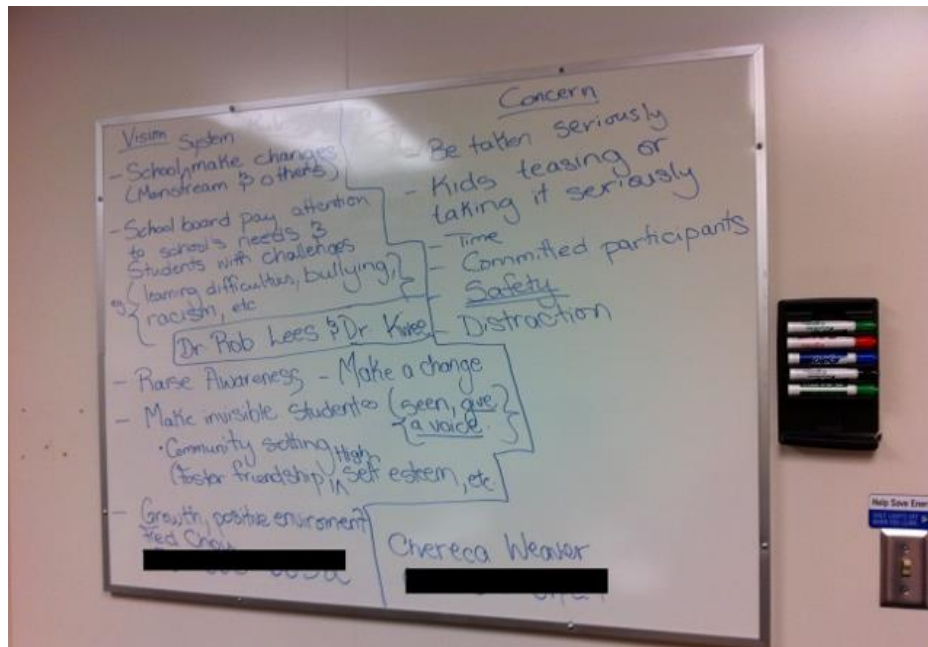 Vision
System
- School, make changes
(Mainstream & others)
- School board pay attention
to school's needs &
Students with challenges
eg { learning difficulties, bullying,
racism, etc }
Dr Rob Lees & Dr
- Raise Awareness - Make a change
- Make invisible students (seen, give
a voice.)
• Community setting
(foster friendship, High self esteem, etc.
- Growth, positive enviroment
Concern
- Be taken seriously
- Kids teasing or
taking it seriously
- Time
- Committed participants
- Safety
- Distraction
Chereca Weaver
Help Save Ener